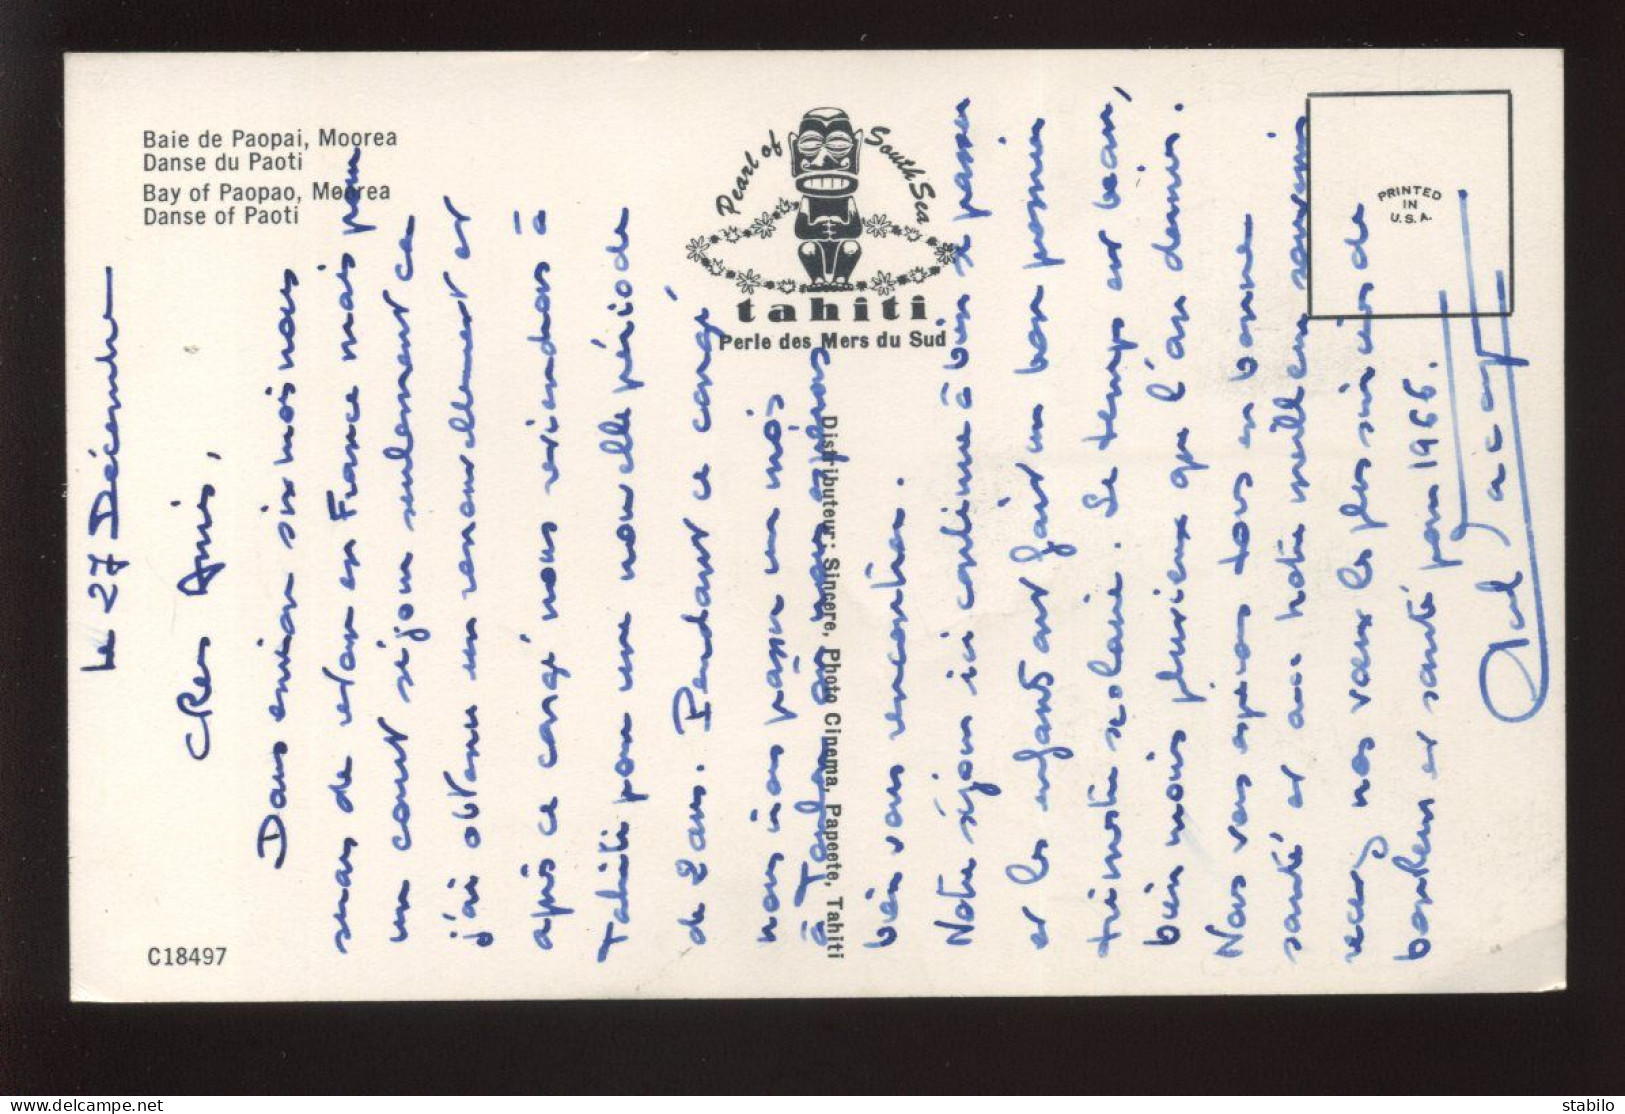 Baie de Paopai, Moorea
Danse du Paoti
Bay of Paopao, Moorea
Danse of Paoti
Pearl of South Sea
tahiti
Perle des Mers du Sud
PRINTED
IN
U.S.A.
Distributeur: Sincere, Photo Cinema, Papeete, Tahiti
C18497
le 27 Décembre
Chers Amis,
Dans environ six mois nous
serons de retour en France mais pour
un court séjour seulement car
j'ai obtenu un renouvellement et
après ce congé nous reviendrons à
Tahiti pour une nouvelle période
de 2 ans. Pendant ce congé
nous irons passer un mois
à nous espérons
bien vous rencontrer.
Notre séjour ici continue à bien se passer
et les enfants ont fait un bon premier
trimestre scolaire. Le temps est beau,
bien moins pluvieux que l'an dernier.
Nous vous espérons tous en bonne
santé et avec notre meilleur souvenir
recevez nos voeux les plus sincères de
bonheur et santé pour 1966.